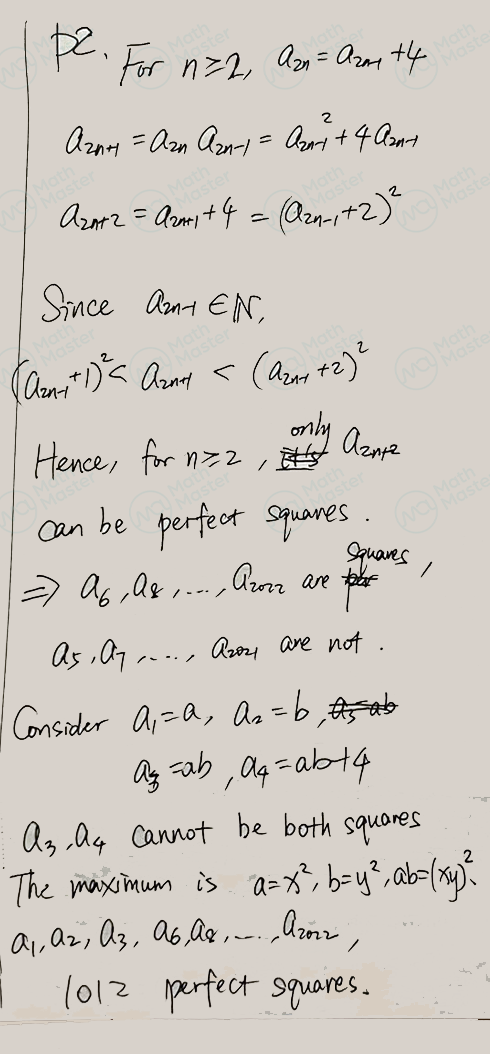 P2. For n≥2, a₂ₙ = a₂ₙ₋₁ +4
a₂ₙ₊₁ = a₂ₙ a₂ₙ₋₁ = a₂ₙ₋₁² + 4 a₂ₙ₋₁
a₂ₙ₊₂ = a₂ₙ₊₁ + 4 = (a₂ₙ₋₁ + 2)²
Since a₂ₙ₋₁ ∈ ℕ,
(a₂ₙ₋₁ +1)² < a₂ₙ₊₁ < (a₂ₙ₋₁ +2)²
Hence, for n≥2, only a₂ₙ₊₂
can be perfect squares.
⇒ a₆, a₈, ..., a₂₀₂₂ are squares,
a₅, a₇, ..., a₂₀₂₁ are not.
Consider a₁=a, a₂=b, a₃=ab
a₃=ab, a₄=ab+4
a₃, a₄ cannot be both squares
The maximum is a=x², b=y², ab=(xy)²、
a₁, a₂, a₃, a₆, a₈, ..., a₂₀₂₂,
1012 perfect squares.
Math Master